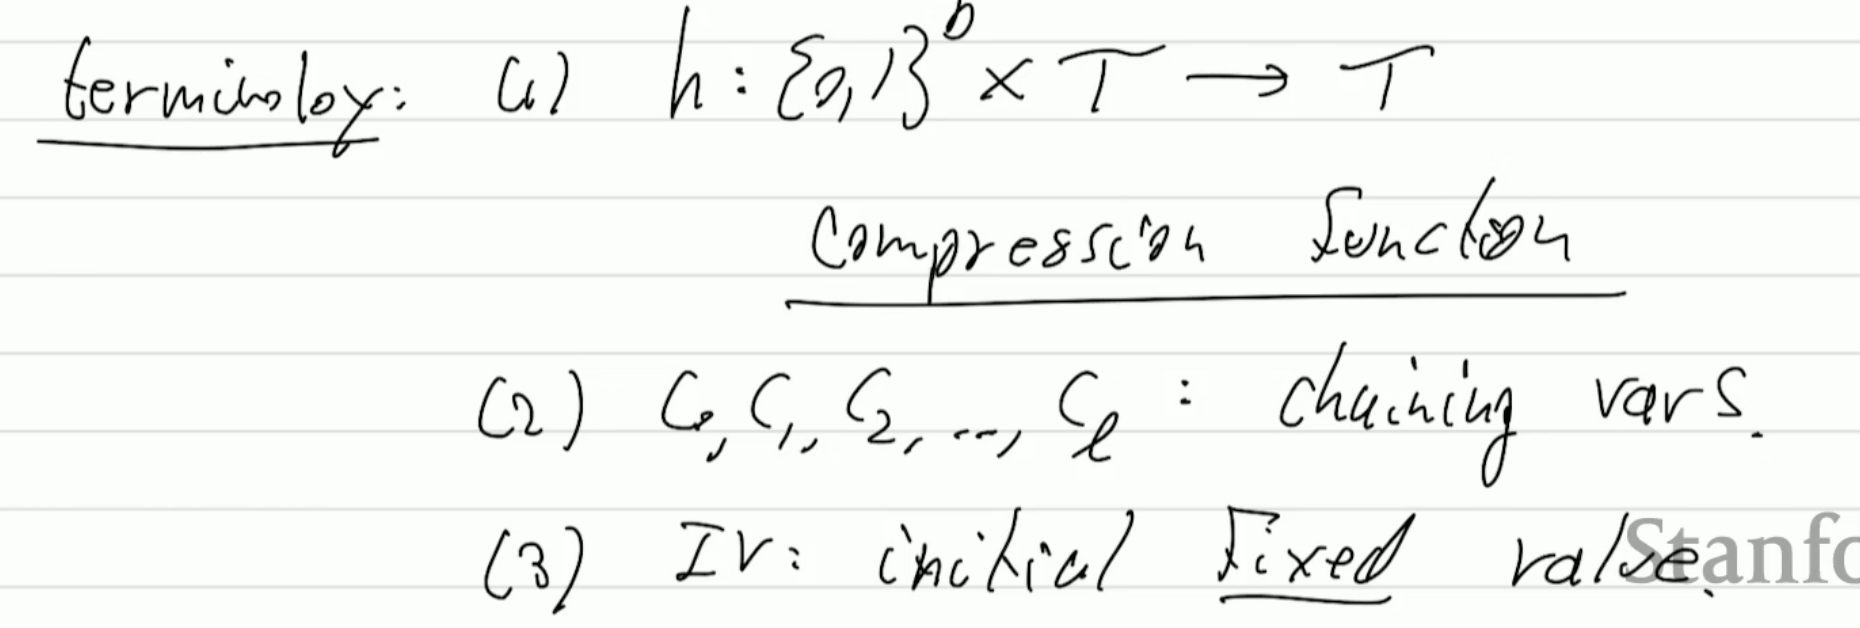 terminoloy: (1) h: {0,1}^b × T → T
compression function
(2) C₀, C₁, C₂, ..., Cℓ : chaining vars.
(3) IV: initial fixed value.
Stanfo